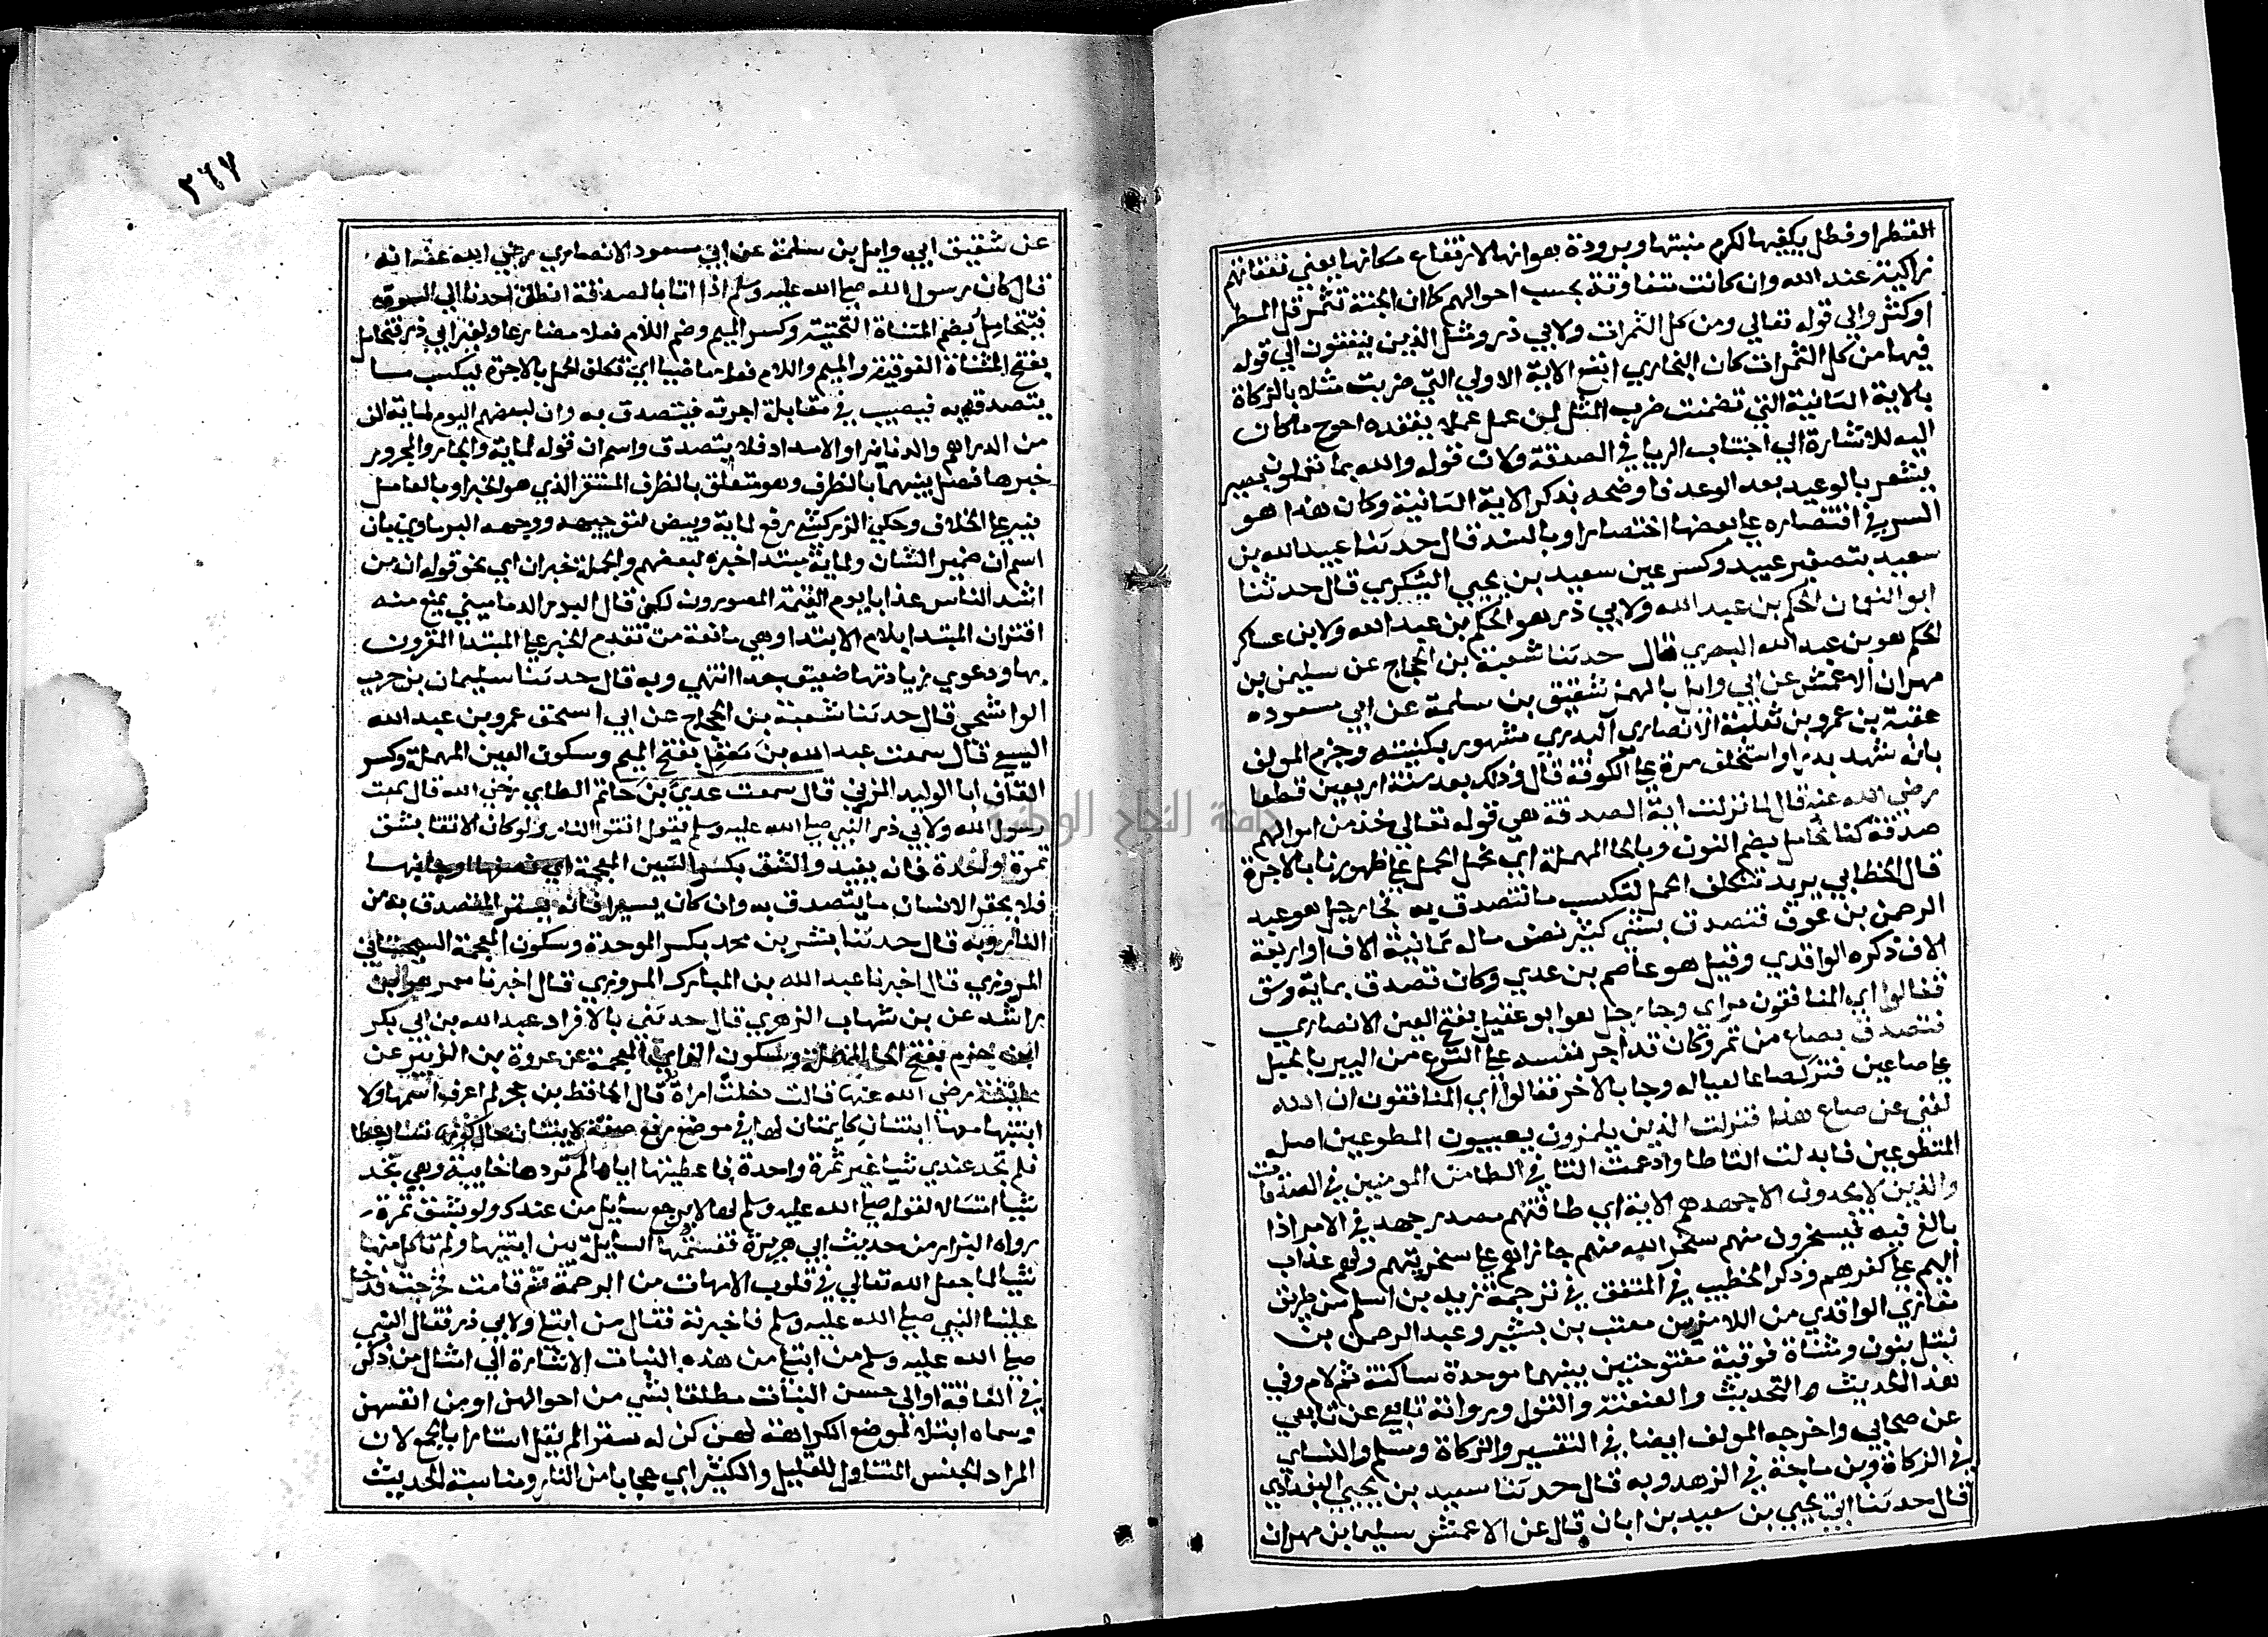 القطر او فطل يكفيها لكرم منبتها وبرودة هوائها لارتفاع مكانها يعني نفقاتهم
زاكية عند الله وان كانت تتفاوتة بحسب احوالهم كما ان الجنة تثمر قل المطر
او كثر والى قوله تعالي ومن كل الثمرات ولابي ذر ومثل الذين ينفقون الي قوله
فيها من كل الثمرات كان البخاري اتبع الاية الاولي التي ضربت مثلا بالزكاة
بالاية الثانية التي تضمنت ضرب المثل لمن عمل عملا يفقده احوج ما كان
اليه للاشارة الي اجتناب الريا في الصدقة ولان قوله والله بما تعملون بصير
يشعر بالوعيد بعد الوعد فاوضحه بذكر الاية الثانية وكان هذا هو
السر في اقتصاره على بعضها اختصارا وبالسند قال حدثنا عبيد الله بن
سعيد بتصغير عبيد وكسر عين سعيد بن يحيي اليشكري قال حدثنا
ابو النعمان الحكم بن عبد الله ولابي ذر هو الحكم بن عبد الله ولابن عساكر
الحكم هو بن عبد الله البصري قال حدثنا شعبة بن الحجاج عن سليمن بن
مهران الاعمش عن ابي وايل بالهمز شقيق بن سلمة عن ابي مسعوده
عقبة بن عمرو بن ثعلبة الانصاري البدري مشهور بكنيته وجزم المولف
بانه شهد بدرا واستخلف مرة على الكوفة قال وذلك بعد سنة اربعين قطعا
رضي الله عنه قال لما نزلت اية الصدقة هي قوله تعالي خذ من اموالهم
صدقة كنا نحامل بضم النون وبالحا المهملة اي نحمل الحمل على ظهورنا بالاجرة
قال الخطابي يريد نتكلف الحمل لنكسب ما نتصدق به فجا رجل هو عبد
الرحمن بن عوف فتصدق بشي كثير نصف ماله ثمانية الاف او اربعة
الاف ذكره الواقدي وقيل هو عاصم بن عدي وكان تصدق بماية وسق
فقالوا اي المنافقون مراي وجا رجل هو ابو عقيل بفتح العين الانصاري
فتصدق بصاع من تمر وكان قد اجر نفسه على النزع من البير بالحبل
على صاعين فترك صاعا لعياله وجا بالاخر فقالوا اي المنافقون ان الله
لغني عن صاع هذا فنزلت الذين يلمزون يعيبون المطوعين اصل
المتطوعين فابدلت التا طا وادغمت التا في الطا من المومنين في الصدقات
والذين لا يجدون الا جهدهم الاية اي طاقتهم مصدر جهد في الامر اذا
بالغ فيه فيسخرون منهم سخر الله منهم جازاهم على سخريتهم ولهم عذاب
اليم على كفرهم وذكر الخطيب في المتفق في ترجمة زيد بن اسلم من طريق
مغازي الواقدي من اللامزين معتب بن بشير وعبد الرحمن بن
نبتل بنون ومثناة فوقية مفتوحتين بينهما موحدة ساكنة ثم لام وفي
هذا الحديث التحديث والعنعنة والقول ورواته تابعي عن تابعي
عن صحابي واخرجه المولف ايضا في التفسير والزكاة ومسلم والنساي
في الزكاة وبن ماجة في الزهد وبه قال حدثنا سعيد بن يحيي البغدادي
قال حدثنا ابي يحيي بن سعيد بن ابان قال عن الاعمش سليما بن مهران
٣٦٧
عن شقيق ابي وايل بن سلمة عن ابي مسعود الانصاري رضي الله عنه انه
قال كان رسول الله صلى الله عليه وسلم اذا اتانا بالصدقة انطلق احدنا الي السوق
فيتحامل بضم المثناة التحتية وكسر الميم وضم اللام فعلا مضارعا ولغير ابي ذر فتحامل
بفتح المثناة الفوقية والميم واللام فعلا ماضيا اي تكلف الحمل بالاجرة ليكسب ما
يتصدق به فيصيب في مقابلة اجرته فيتصدق به وان لبعضهم اليوم لماية الف
من الدراهم والدنانير او الامداد فلا يتصدق واسم ان قوله لماية والجار والمجرور
خبرها فصل بينهما بالظرف وهو متعلق بالظرف المستقر الذي هو الخبر او بالعامل
فيه على الخلاف وحكي الزركشي رفع لماية وبيض لتوجيهه ووجهه البرماوي بان
اسم ان ضمير الشان ولماية مبتدا خبره لبعضهم والجملة خبر ان اي نحو قوله ان من
اشد الناس عذابا يوم القيمة المصورون لكن قال البدر الدماميني يمنع منه
اقتران المبتدا بلام الابتدا وهي مانعة من تقدم الخبر على المبتدا المقرون
بها ودعوي زيادتها ضعيف جدا انتهي وبه قال حدثنا سليمان بن حرب
الواشحي قال حدثنا شعبة بن الحجاج عن ابي اسحق عمرو بن عبد الله
السبيعي قال سمعت عبد الله بن معقل بفتح الميم وسكون العين المهملة وكسر
القاف ابا الوليد المزني قال سمعت عدي بن حاتم الطاي رضي الله قال سمعت
رسول الله ولابي ذر النبي صلى الله عليه وسلم يقول اتقوا النار ولو كان الاتقا بشق
تمرة واحدة فانه يفيد والشق بكسر الشين المعجمة اي نصفها او جانبها
فلا يحقر الانسان ما يتصدق به وان كان يسيرا فانه يستر المتصدق به من
النار وبه قال حدثنا بشر بن محمد بكسر الموحدة وسكون المعجمة السختياني
المروزي قال اخبرنا عبد الله بن المبارك المروزي قال اخبرنا معمر هو ابن
راشد عن بن شهاب الزهري قال حدثني بالافراد عبد الله بن ابي بكر
ابن حزم بفتح الحا المهملة وسكون الزاي المعجمة عن عروة بن الزبير عن
عايشة رضي الله عنها قالت دخلت امراة قال الحافظ بن حجر لم اعرف اسمها ولا
ابنتيها معها ابنتان كاينتان لها في موضع رفع صفة لابنتان حال كونها تسال عطا
فلم تجد عندي شيا غير تمرة واحدة فاعطيتها اياها لم تردها خايبة وهي تجد
شيا امتثالا لقوله صلى الله عليه وسلم لها لا يرجع سايل من عندك ولو بشق تمرة
رواه البزار من حديث ابي هريرة فقسمتها السايلة بين ابنتيها ولم تاكل منها
شيا لما جعل الله تعالي في قلوب الامهات من الرحمة ثم قامت فخرجت فدخل
علينا النبي صلى الله عليه وسلم فاخبرته فقال من ابتلي ولابي ذر فقال النبي
صلى الله عليه وسلم من ابتلي من هذه البنات الاشارة الي امثال من ذكر
في الفاقة او الي جنس البنات مطلقا بشي من احوالهن او من انفسهن
وسماه ابتلا لموضع الكراهة لهن كن له سترا لم يقل استارا بالجمع لان
المراد الجنس المتناول للقليل والكثير اي حجابا من النار ومناسبة الحديث
جامعة النجاح الوطنية